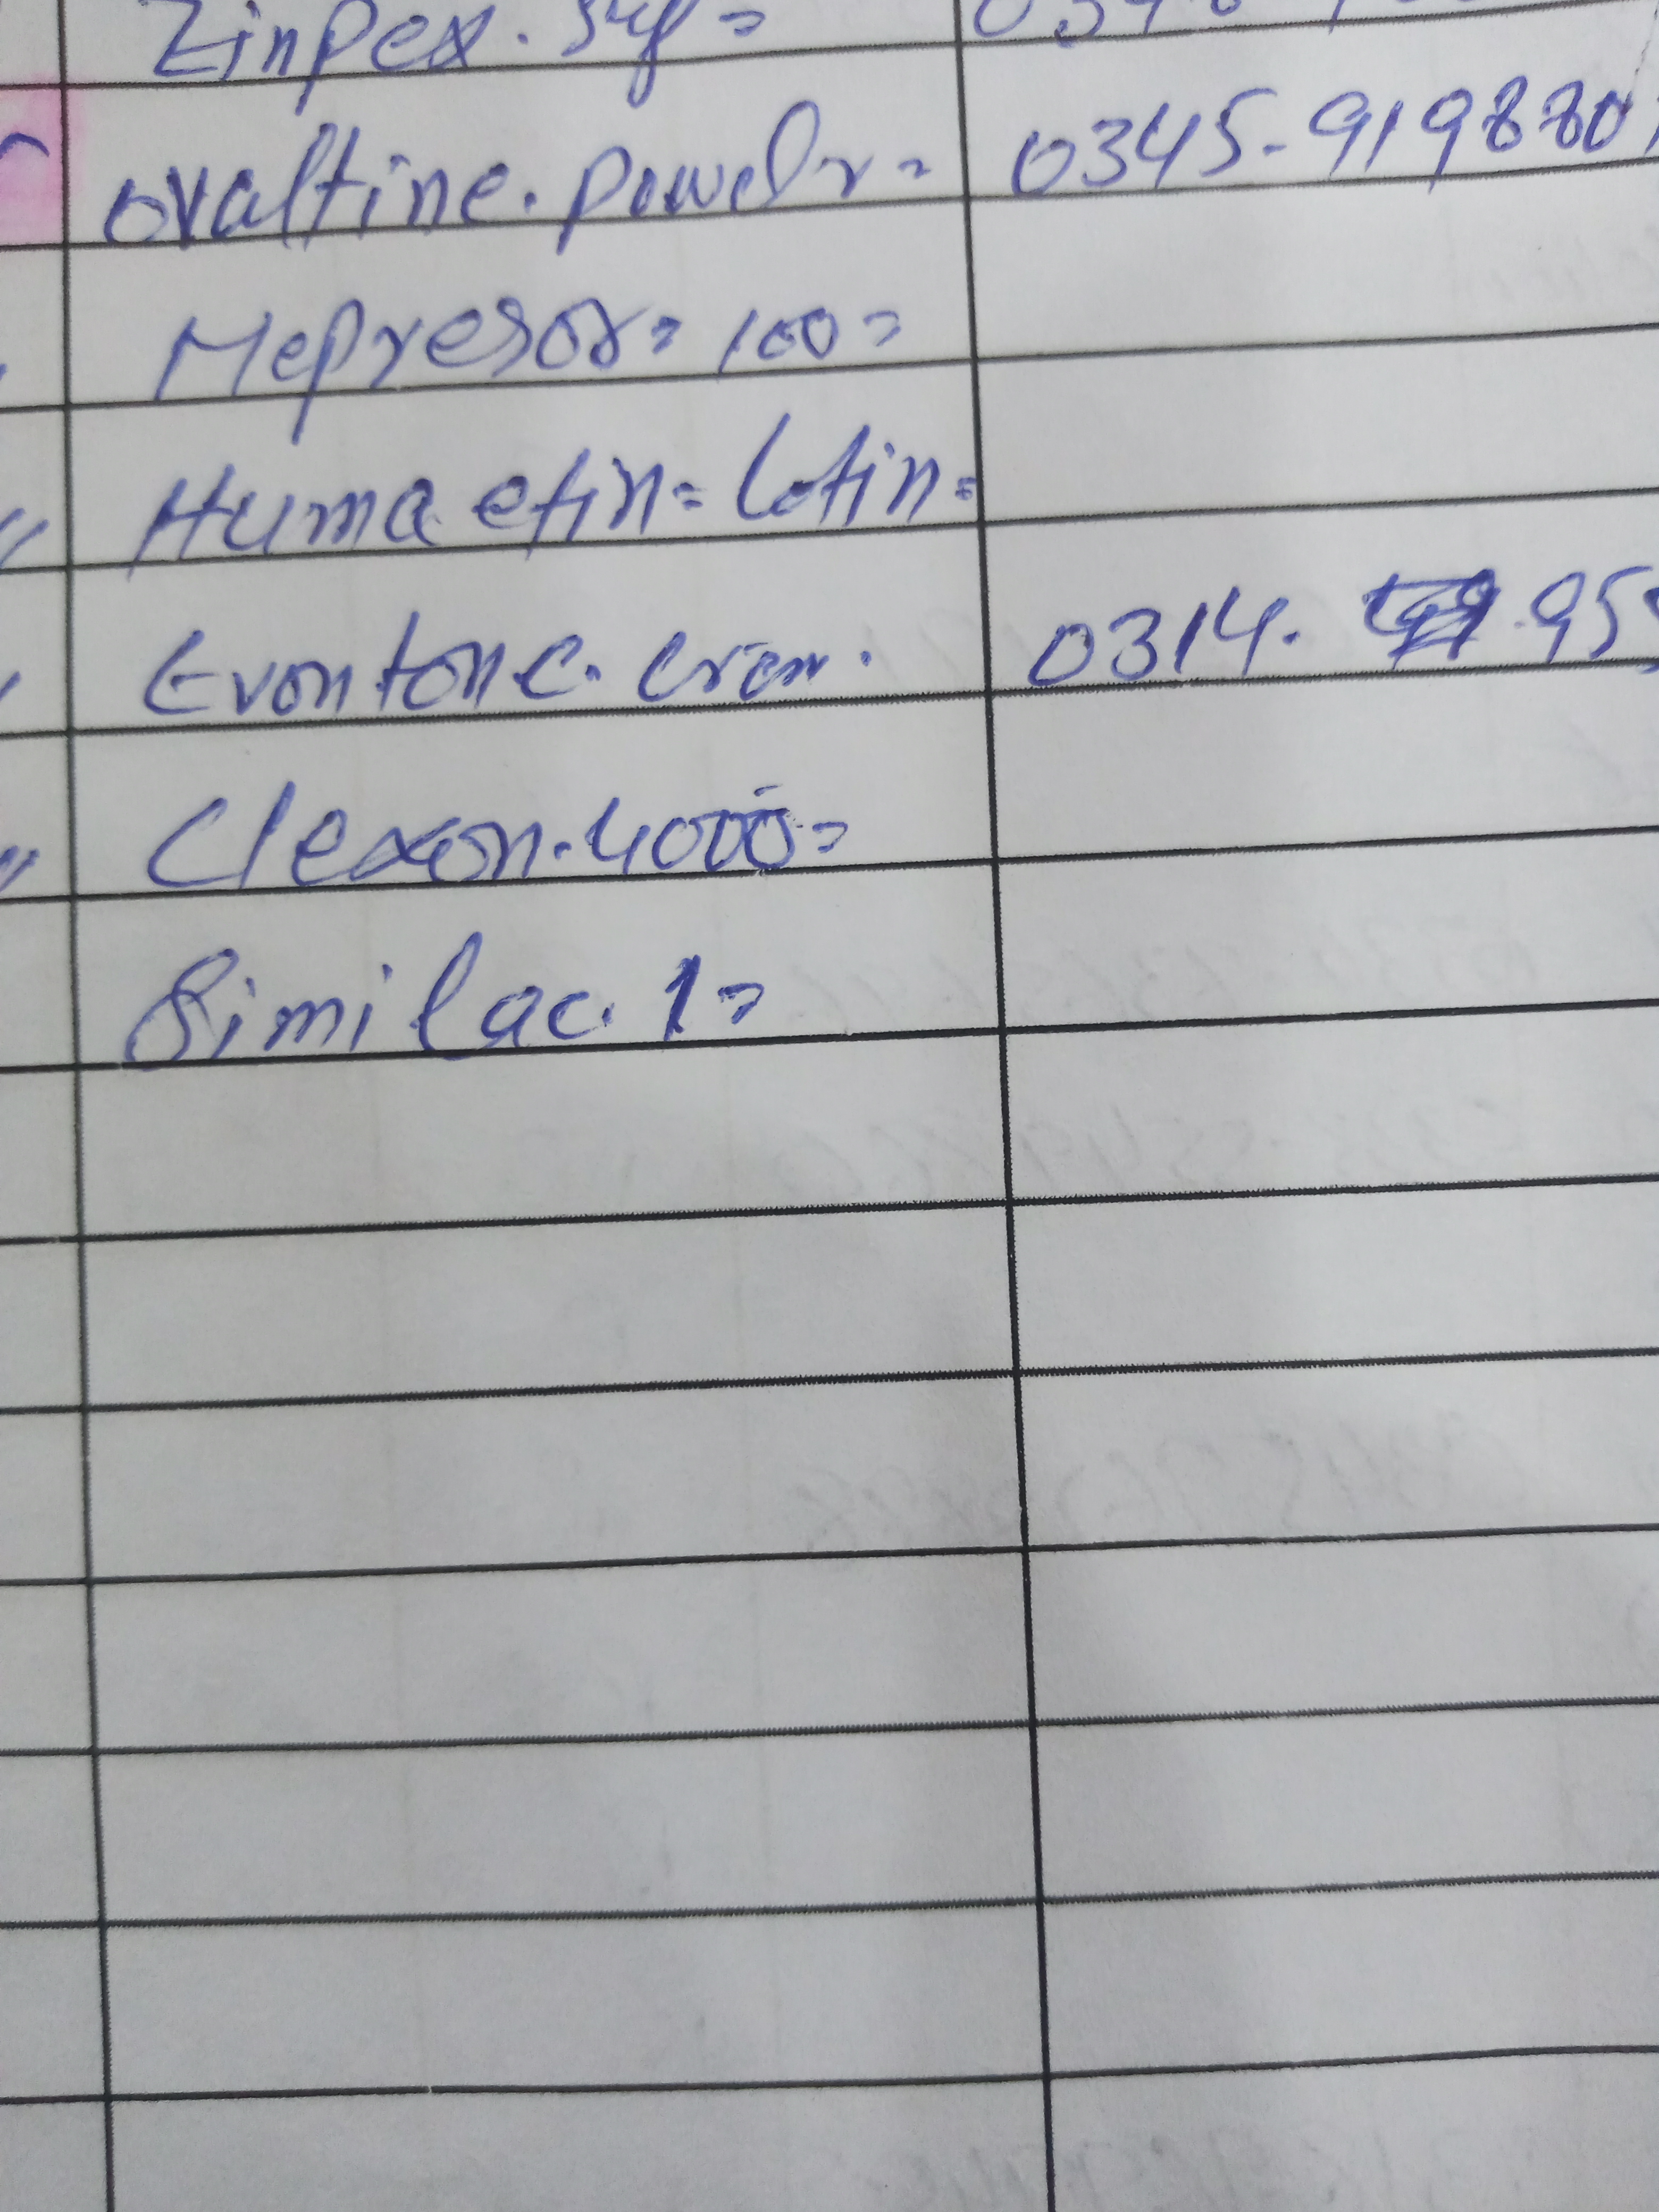 Zinpex. Syp =
ovaltine. powedr = 0345-9198801
Mepresor = 100 =
Huma etin = Lotin =
Evontone. Crem. 0314. 95
Clexon. 4000 =
Similac. 1 =